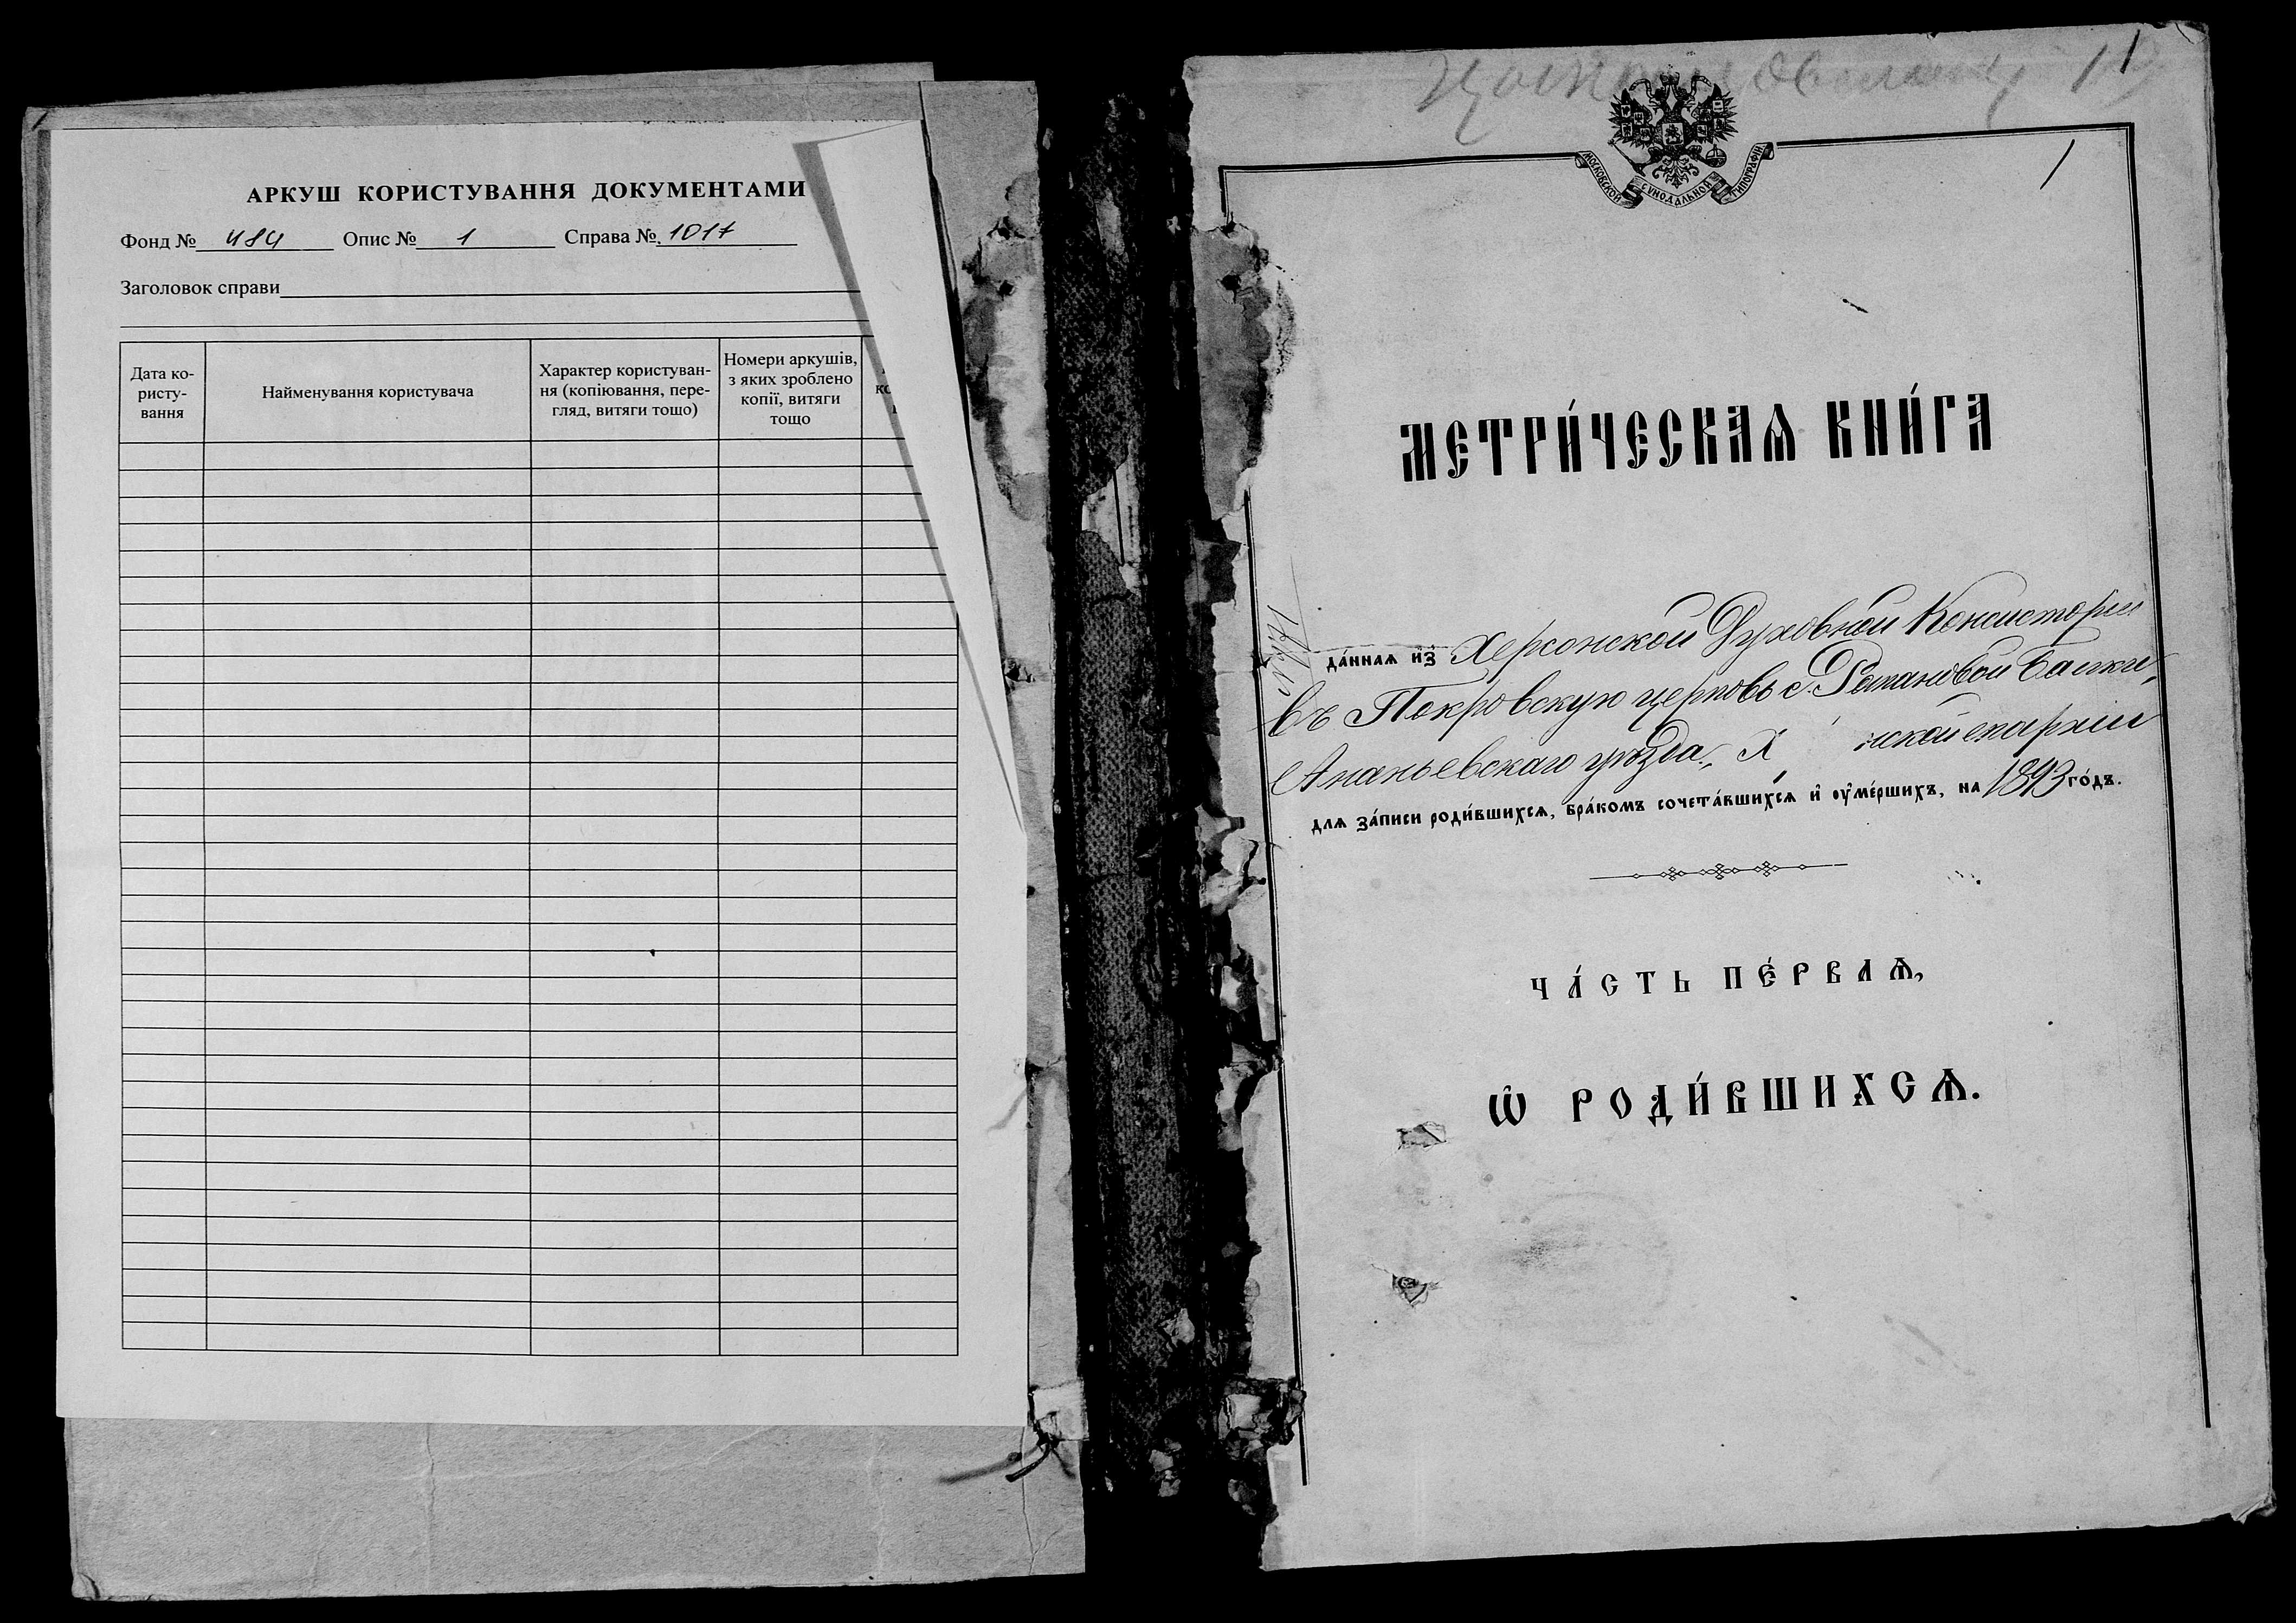 АРКУШ КОРИСТУВАННЯ ДОКУМЕНТАМИ
Фонд № 484 Опис № 1 Справа № 1017
Заголовок справи
Дата ко-
ристу-
вання
Найменування користувача
Характер користуван-
ня (копіювання, пере-
гляд, витяги тощо)
Номери аркушів,
з яких зроблено
копії, витяги
тощо
1
1
МОСКОВСКОЙ СѴНОДАЛЬНОЙ ТИПОГРАФІИ
МЕТРИ́ЧЕСКАѦ КНИ́ГА
да́ннаѧ и҆з̾ Херсонской Духовной Консисторіи
въ Покровскую церковь с. Романовой Балки,
Ананьевскаго уѣзда, Х нской епархіи
длѧ за́писи роди́вшихсѧ, бра́комъ сочета́вшихсѧ и҆ ᲂу҆ме́ршихъ, на 1893 го́дъ.
ЧА́СТЬ ПЕ́РВАѦ,
Ѡ҆ РОДИ́ВШИХСѦ.